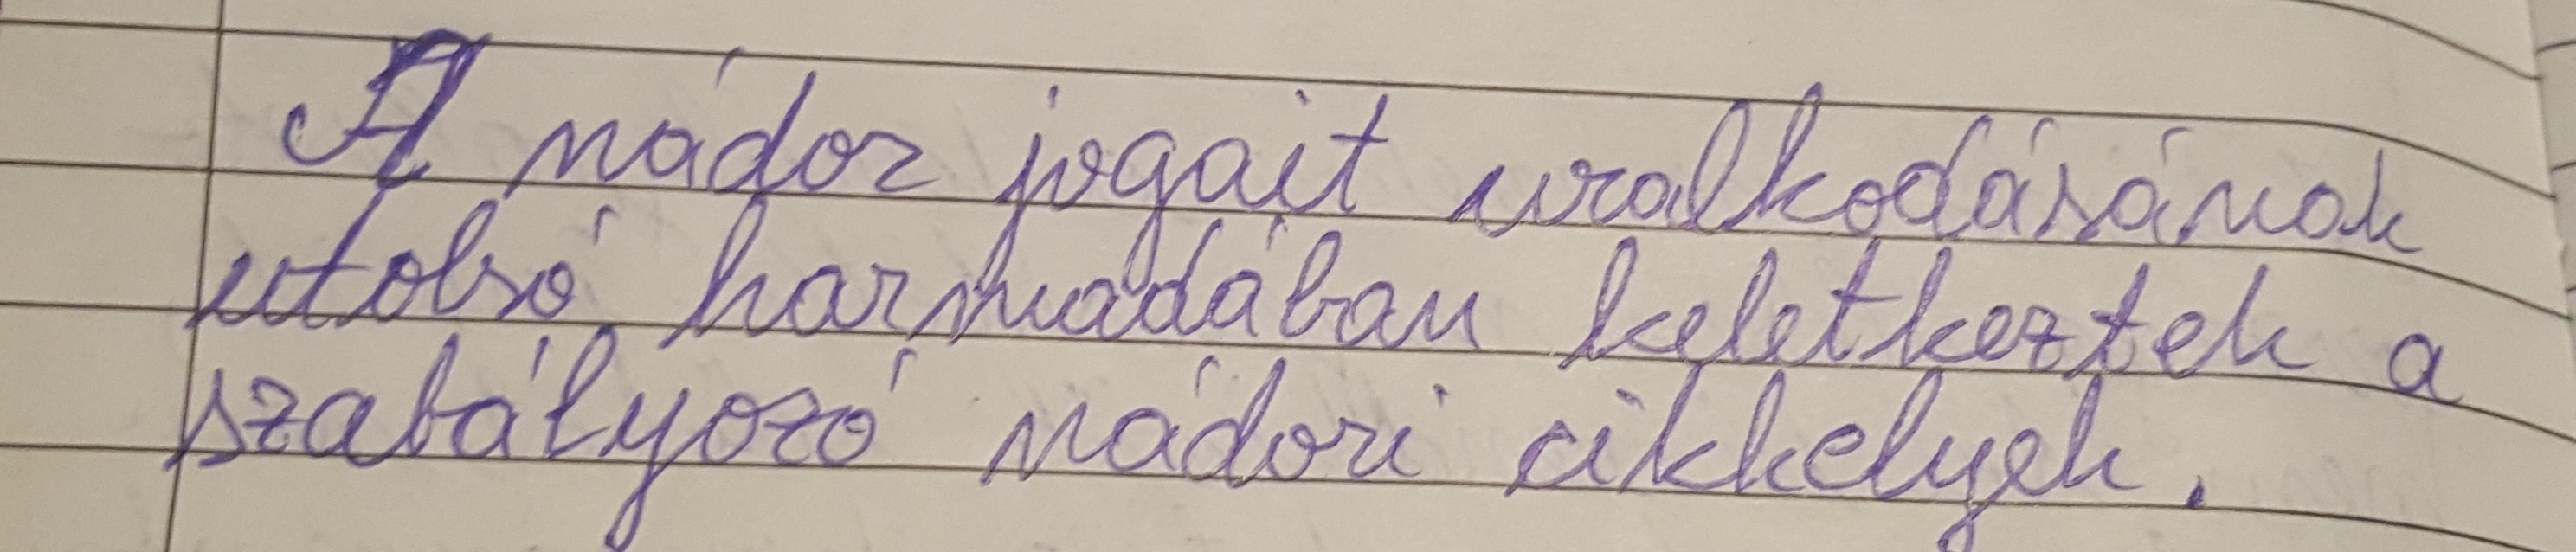 A nádor jogait uralkodásának
utolsó harmadában keletkeztek a
szabályozó nádori cikkelyek.